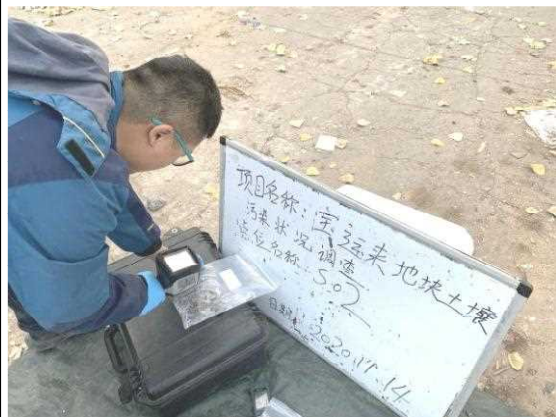 项目名称：宝运来地块土壤
污染状况调查
点位名称：S02
日期：2020.11.14